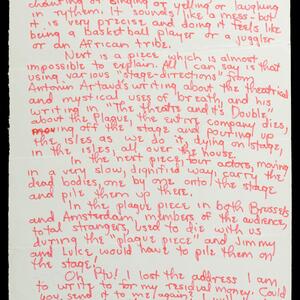 chanting or singing or yelling or laughing
in rythem: it sounds like a mess - but
it is very precise and doing it feels like
being a basketball player or a juggler
or an African tribe.
Next is a piece which is almost
impossible to explain. I can say is that
using various "stage-directions" from
Antonin Artaud's writing about the theatrical
and mystical uses of breath, and his
writing in "The Theatre and Its Double,"
about the plague, the entire company dies,
moving off the stage and pouring up
the isles, as we do it, dying on stage,
in the isles, all over the house.
In the next piece, four actors, moving
in a very slow, dignified way, carry the
dead bodies, one by one onto the stage
and pile them up there.
In the plague piece in both Brussels
and Amsterdam, members of the audience,
total strangers, used to die with us
during the "plague piece" and Jimmy
and Luke would have to pile them on
the stage!
Oh Phu! I lost the address I am
to write to for my residual money. Could
you send it to me again?